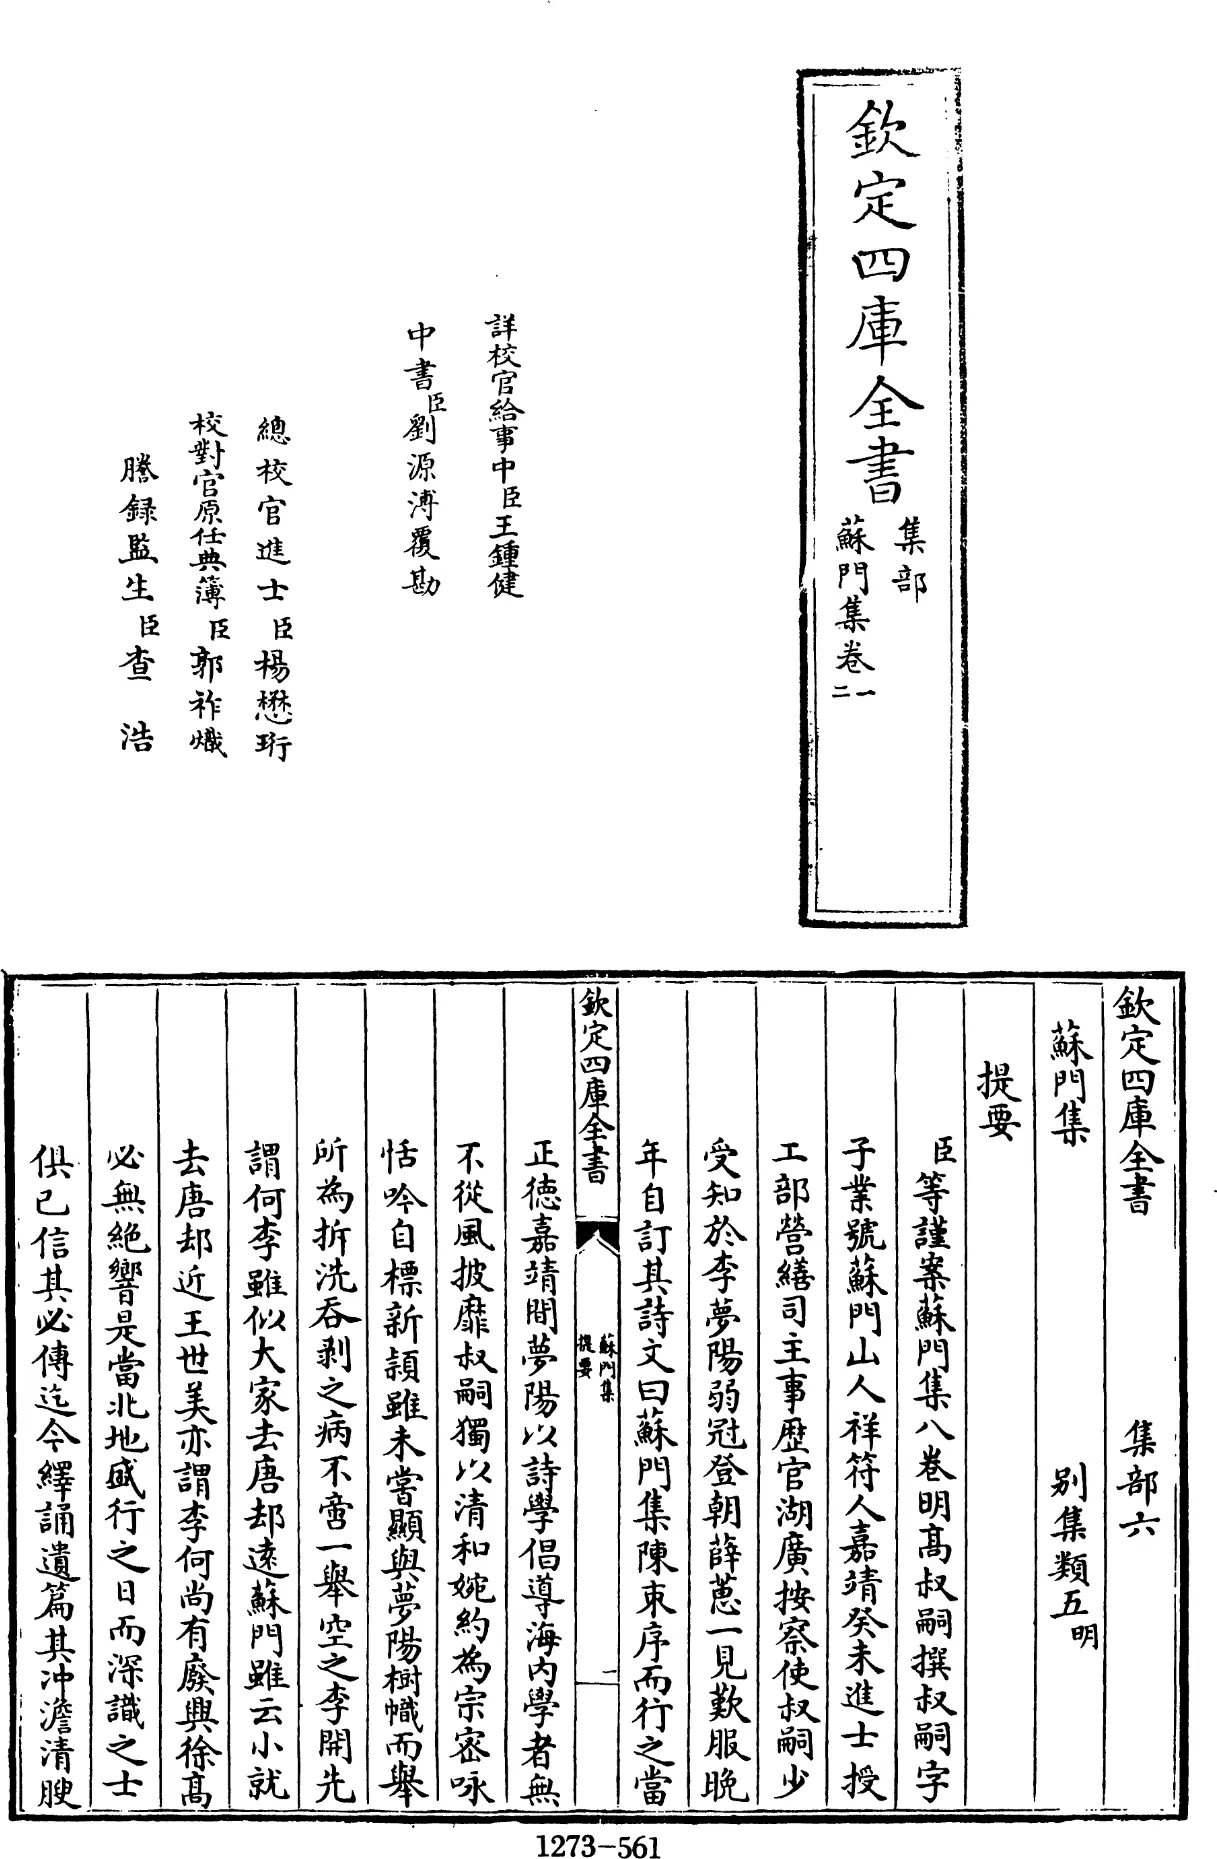 欽定四庫全書
集部
蘇門集卷一
二
詳校官給事中臣王鍾健
中書臣劉源溥覆勘
總校官進士臣楊懋珩
校對官原任典簿臣郭祚熾
謄録監生臣查浩
欽定四庫全書 集部六
蘇門集 别集類五明
提要
臣等謹案蘇門集八卷明髙叔嗣撰叔嗣字
子業號蘇門山人祥符人嘉靖癸未進士授
工部營繕司主事歴官湖廣按察使叔嗣少
受知於李夢陽弱冠登朝薛蕙一見歎服晩
年自訂其詩文曰蘇門集陳束序而行之當
欽定四庫全書
蘇門集
提要
一
正徳嘉靖間夢陽以詩學倡導海内學者無
不從風披靡叔嗣獨以清和婉約為宗密咏
恬吟自標新頴雖未嘗顯與夢陽樹幟而舉
所為拆洗吞剥之病不啻一舉空之李開先
謂何李雖似大家去唐却逺蘇門雖云小就
去唐却近王世美亦謂李何尚有廢興徐髙
必無絶響是當北地盛行之日而深識之士
俱已信其必傳迄今繹誦遺篇其冲澹清腴
1273-561